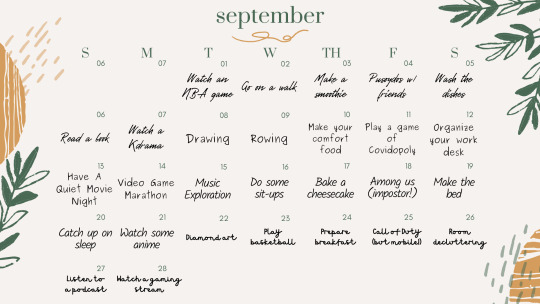 september
S M T W TH F S
06
07
01
Watch an
NBA game
02
Go on a walk
03
Make a
smoothie
04
Pusoydos w/
friends
05
Wash the
dishes
06
Read a book
07
Watch a
Kdrama
08
Drawing
09
Rowing
10
Make your
comfort
food
11
Play a game
of
Covidopoly
12
Organize
your work
desk
13
Have A
Quiet Movie
Night
14
Video Game
Marathon
15
Music
Exploration
16
Do some
sit-ups
17
Bake a
cheesecake
18
Among us
(impostor!)
19
Make the
bed
20
Catch up on
sleep
21
Watch some
anime
22
Diamond art
23
Play
basketball
24
Prepare
breakfast
25
Call of Duty
(but mobile!)
26
Room
decluttering
27
Listen to
a podcast
28
Watch a gaming
stream